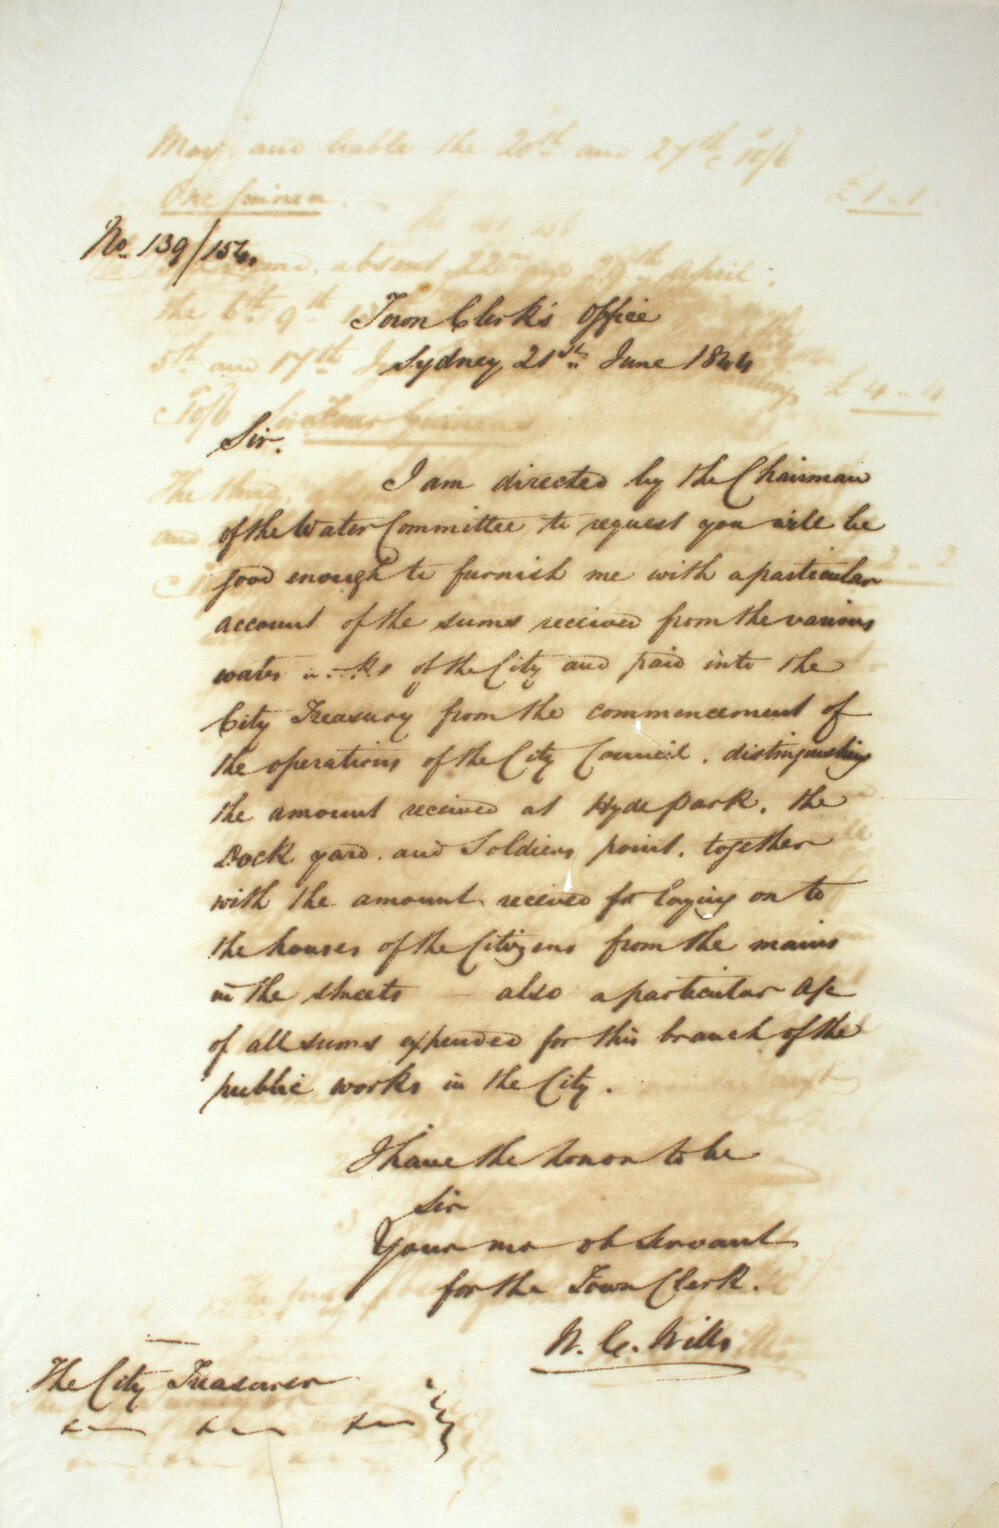 No. 139/154.
Town Clerk's Office
Sydney 21st June 1844
Sir.
I am directed by the Chairman
of the Water Committee to request you will be
good enough to furnish me with a particular
account of the sums received from the various
water of the City and paid into the
City Treasury from the commencement of
the operations of the City Council. distinguishing
the amount received at Hyde Park. the
Dock yard. and Soldiers point. together
with the amount received for laying on to
the houses of the Citizens from the mains
in the streets — also a particular a/c
of all sums expended for this branch of the
public works in the City.
I have the honor to be
Sir
Your mo ob Servant
for the Town Clerk.
W. C. Wills
The City Treasurer